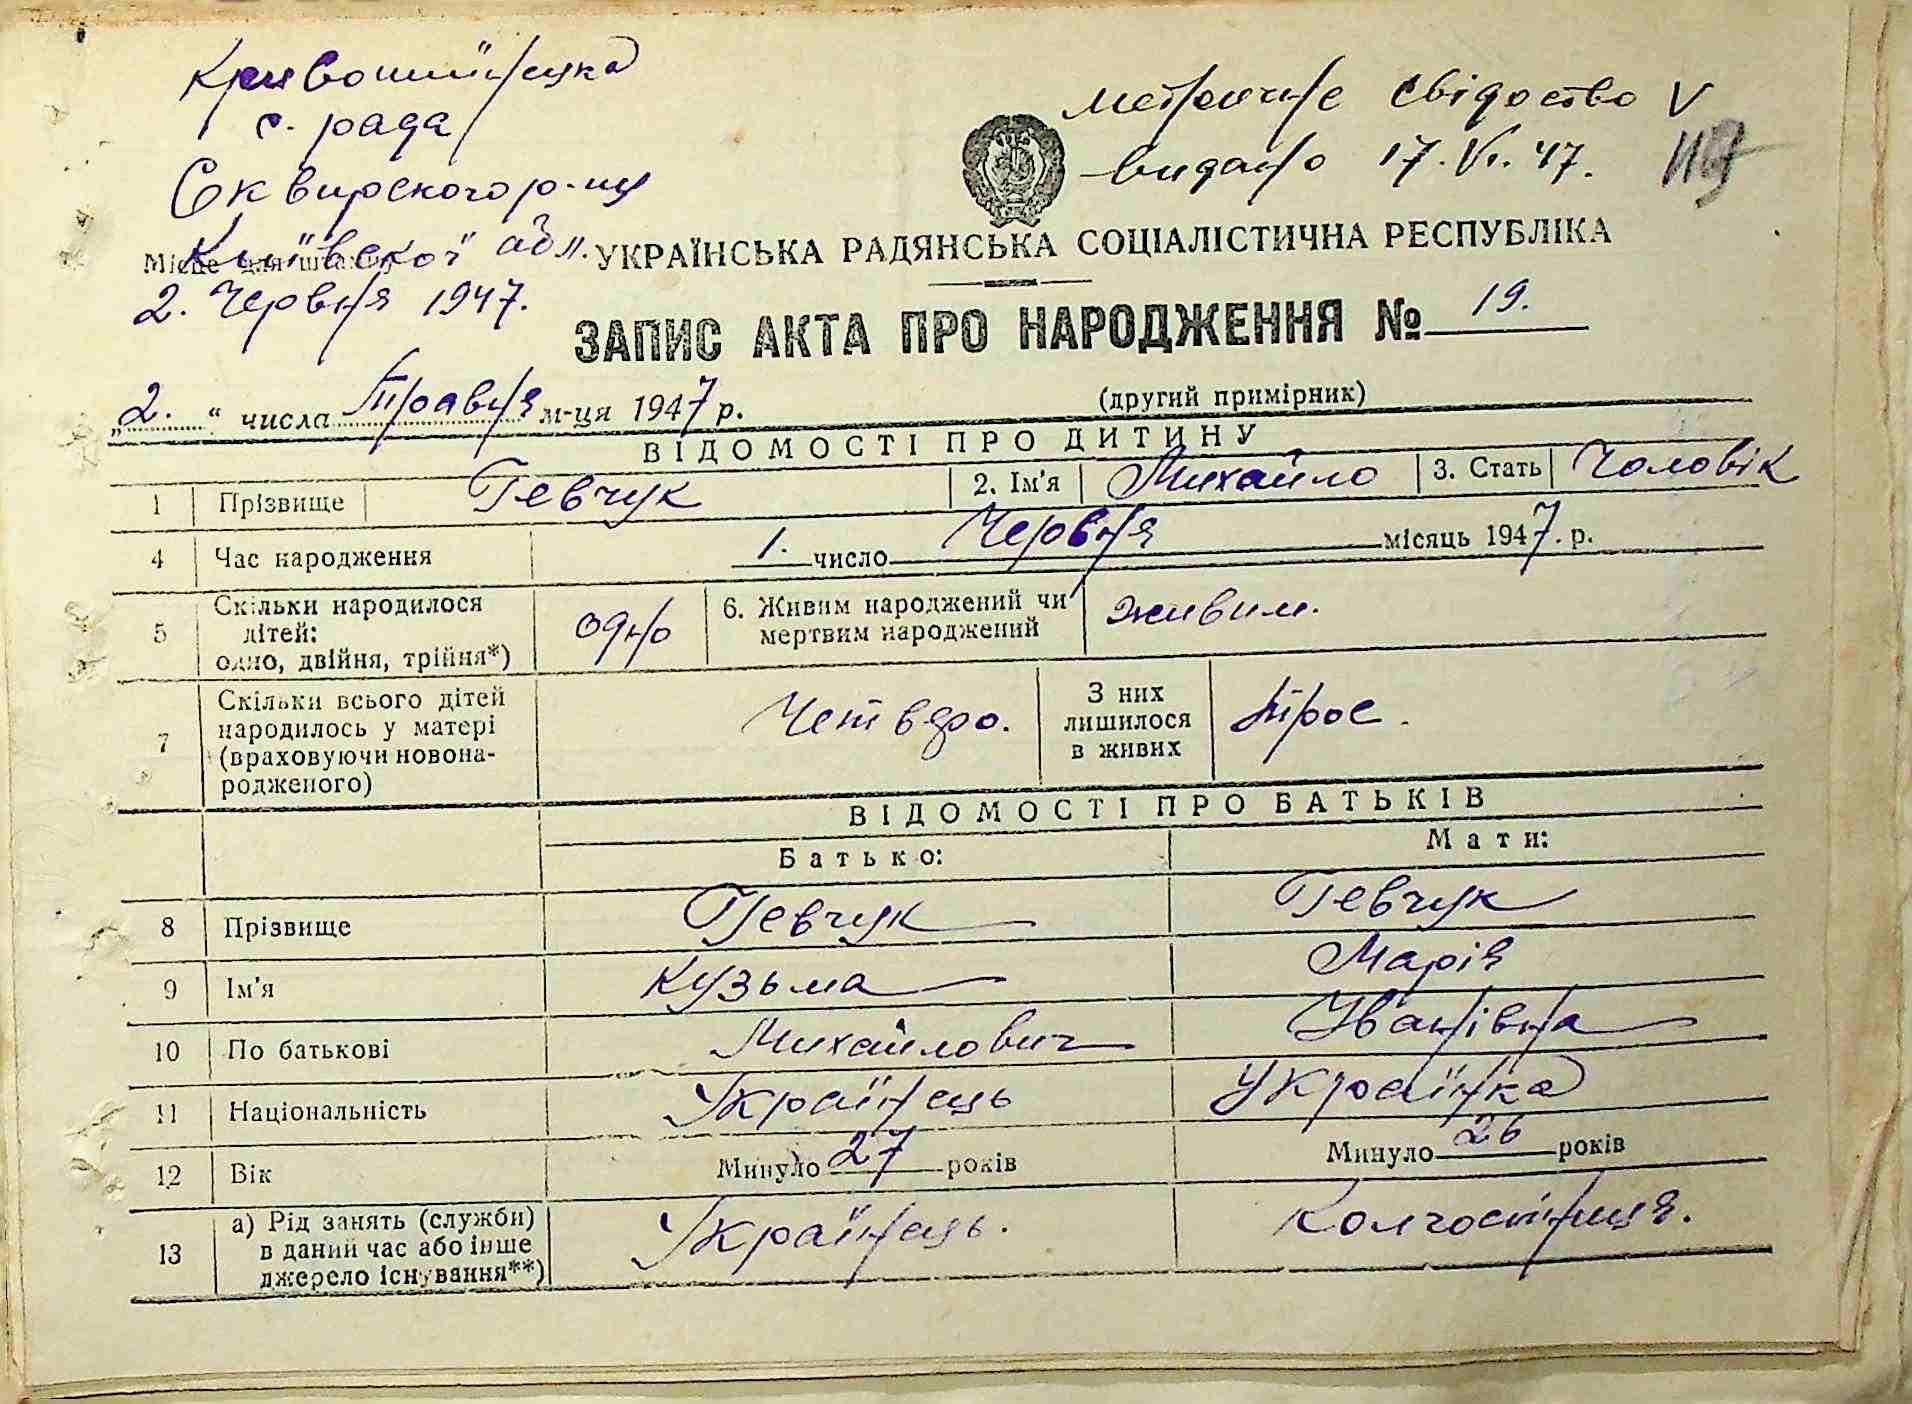 Кривошиїнецка
с. рада
Сквирского р-ну
Київскої обл.
Місце для штампу
2. Червня 1947.
метричне свідоство V
видано 17.VI.47.
УКРАЇНСЬКА РАДЯНСЬКА СОЦІАЛІСТИЧНА РЕСПУБЛІКА
ЗАПИС АКТА ПРО НАРОДЖЕННЯ № 19.
(другий примірник)
„2.“ числа Травня м-ця 1947 р.
ВІДОМОСТІ ПРО ДИТИНУ
1 Прізвище Гевчук 2. Ім'я Михайло 3. Стать Чоловік
4 Час народження 1. число Червня місяць 1947. р.
5 Скільки народилося дітей: одно, двійня, трійня*) одно 6. Живим народжений чи мертвим народжений живим.
7 Скільки всього дітей народилось у матері (враховуючи новонародженого) Четверо. З них лишилося в живих Троє.
ВІДОМОСТІ ПРО БАТЬКІВ
Батько: Мати:
8 Прізвище Гевчук Гевчук
9 Ім'я Кузьма Марія
10 По батькові Михайлович Іванівна
11 Національність Українець Українка
12 Вік Минуло 27 років Минуло 26 років
13 а) Рід занять (служби) в даний час або інше джерело існування**) Українець. Колгоспниця.